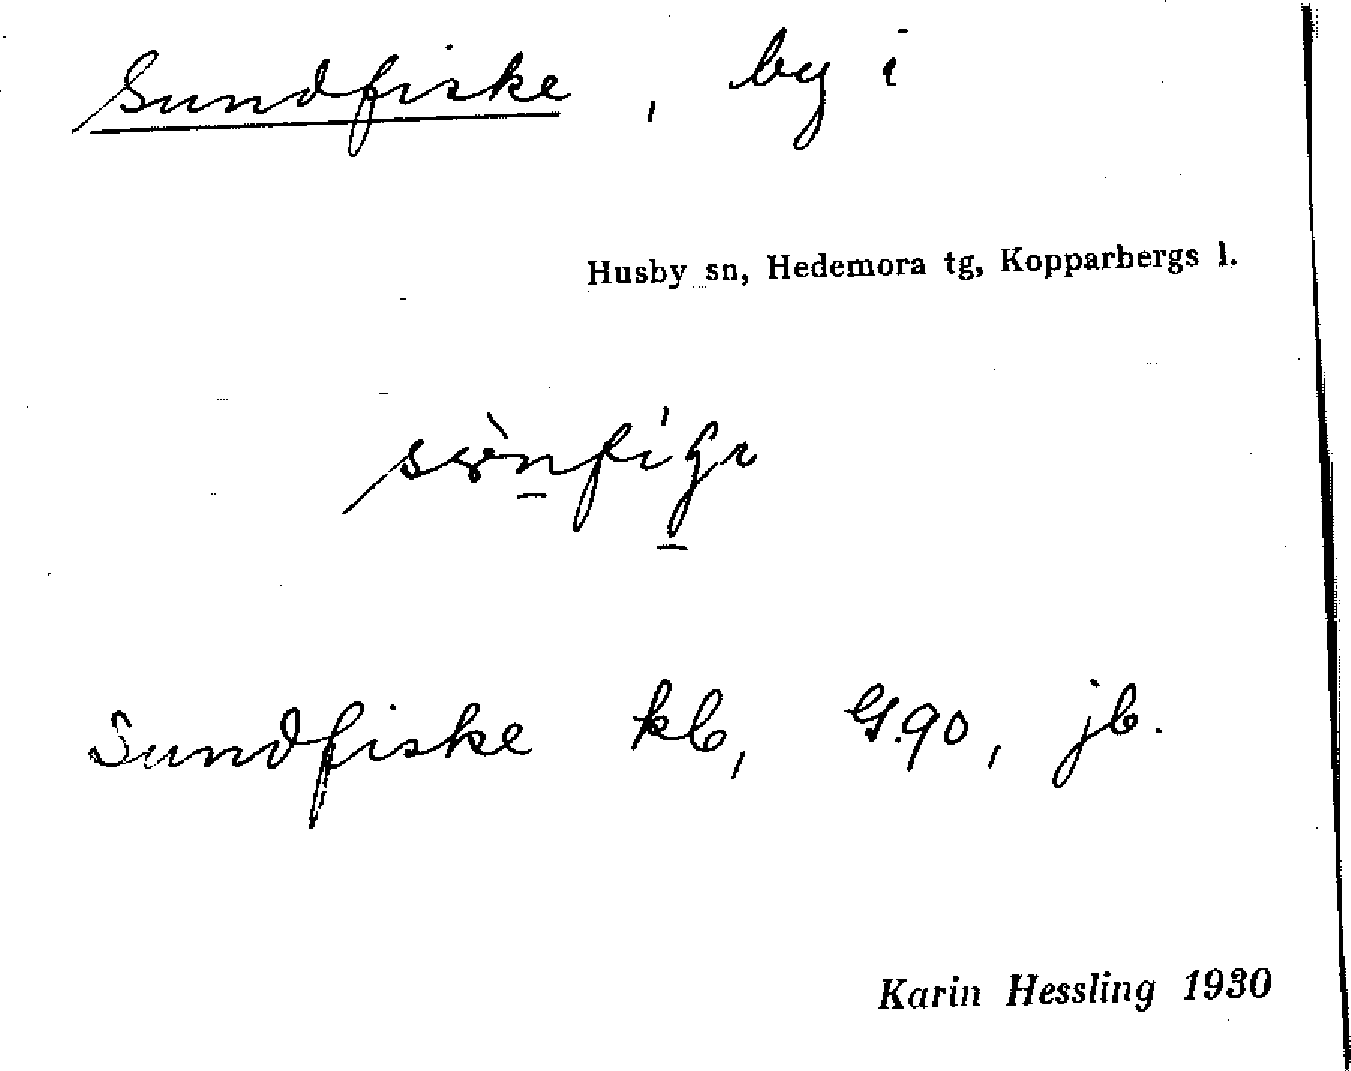 Sundfiske, by i
Husby sn, Hedemora tg, Kopparbergs l.
Sundfiske kb, G.90, jb.
Karin Hessling 1930